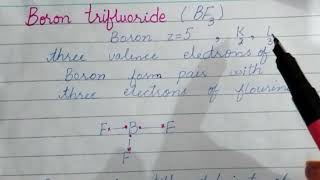 Boron trifluoride (BF3)
Boron z=5 , K2, L3
three valence electrons of
Boron form pairs with
three electrons of flourine
F · B · F
F